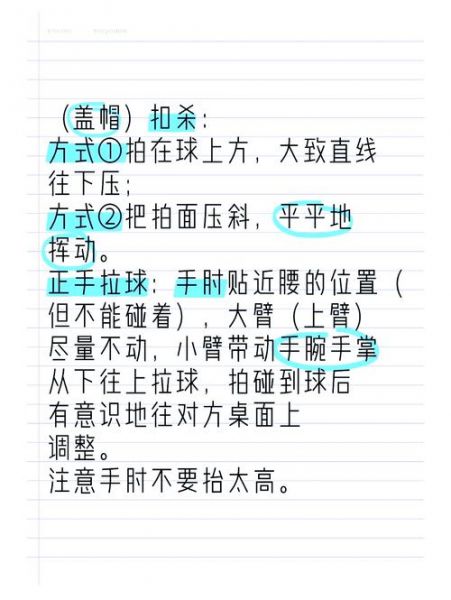 （盖帽）扣杀：
方式①拍在球上方，大致直线
往下压；
方式②把拍面压斜，平平地
挥动。
正手拉球：手肘贴近腰的位置（
但不能碰着），大臂（上臂）
尽量不动，小臂带动手腕手掌
从下往上拉球，拍碰到球后
有意识地往对方桌面上
调整。
注意手肘不要抬太高。